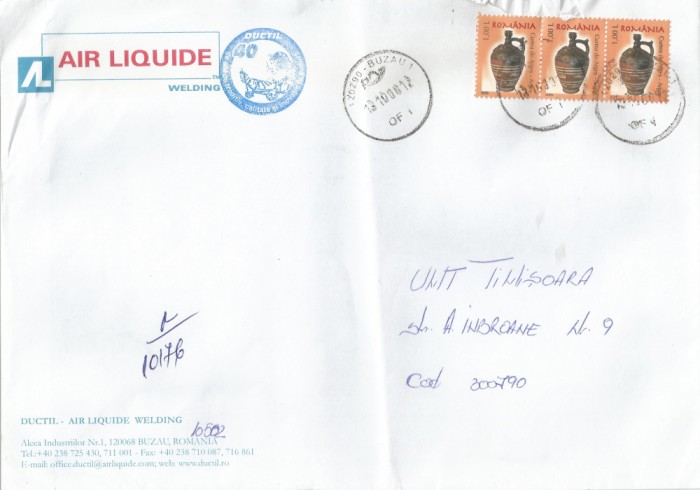 AIR LIQUIDE
TM
WELDING
DUCTIL
40
calitate și
120290 - BUZAU 1
13 10 08 12
OF 1
ROMÂNIA
1,00 L
ROMÂNIA
1,00 L
ROMÂNIA
1,00 L
OF 1
UMT TIMIȘOARA
str. A. IMBROANE Nr. 9
Cod 300790
10176
10502
DUCTIL - AIR LIQUIDE WELDING
Aleea Industriilor Nr.1, 120068 BUZAU, ROMANIA
Tel.:+40 238 725 430, 711 001 - Fax: +40 238 710 087, 716 861
E-mail: office.ductil@airliquide.com; web: www.ductil.ro